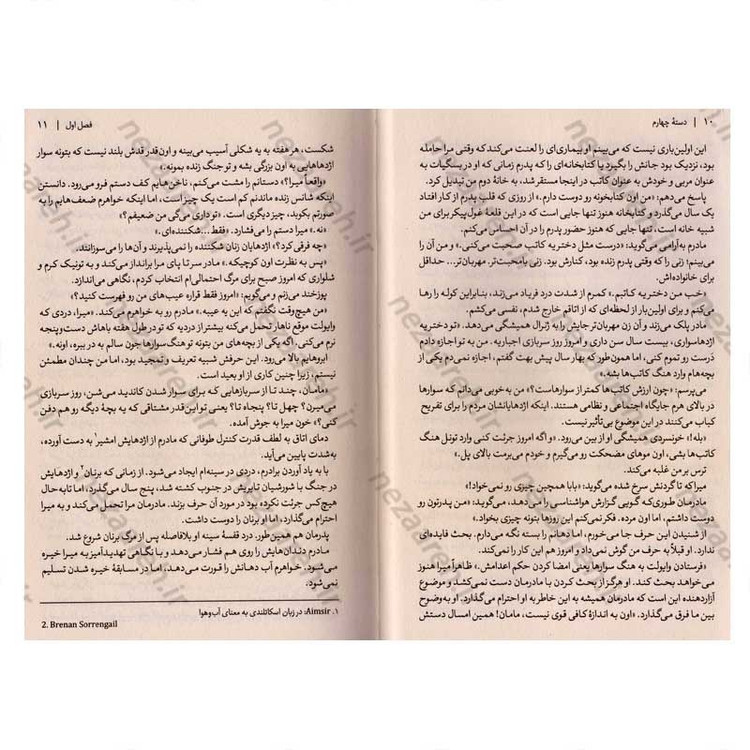 ۱۰ | دستهٔ چهارم
این اولین‌باری نیست که می‌بینم او بیماری‌ای را لعنت می‌کند که وقتی مرا حامله
بود، نزدیک بود جانش را بگیرد یا کتابخانه‌ای را که پدرم زمانی که او در بسگیات به
عنوان مربی و خودش به عنوان کاتب در اینجا مستقر شد، به خانهٔ دوم من تبدیل کرد.
پاسخ می‌دهم: «من اون کتابخونه رو دوست دارم.» از روزی که قلب پدرم از کار افتاد
یک سال می‌گذرد و کتابخانه هنوز تنها جایی است که در این قلعهٔ غول‌پیکر برای من
شبیه خانه است، تنها جایی که هنوز حضور پدرم را در آن احساس می‌کنم.
مادرم به‌آرامی می‌گوید: «درست مثل دختر یه کاتب صحبت می‌کنی.» و من آن را
می‌بینم؛ زنی را که وقتی پدرم زنده بود، کنارش بود. زنی بامحبت‌تر، مهربان‌تر... حداقل
برای خانواده‌اش.
«خب من دختر یه کاتبم.» کمرم از شدت درد فریاد می‌زند، بنابراین کوله را رها
می‌کنم و برای اولین‌بار از لحظه‌ای که از اتاقم خارج شدم، نفسی می‌کشم.
مادر پلک می‌زند و آن زن مهربان‌تر جایش را به ژنرال همیشگی می‌دهد. «تو دختر یه
اژدهاسواری، بیست سال سن داری و امروز روز سربازی اجباریه. من به تو اجازه دادم
درست رو تموم کنی، اما همون‌طور که بهار سال پیش بهت گفتم، اجازه نمی‌دم یکی از
بچه‌هام وارد هنگ کاتب‌ها بشه.»
می‌پرسم: «چون ارزش کاتب‌ها کمتر از سوارهاست؟» من به‌خوبی می‌دانم که سوارها
در بالای هرم جایگاه اجتماعی و نظامی هستند. اینکه اژدهایانشان مردم را برای تفریح
کباب می‌کنند در این موضوع بی‌تأثیر نیست.
«بله!» خونسردی همیشگی او از بین می‌رود. «و اگه امروز جرئت کنی وارد تونل هنگ
کاتب‌ها بشی، اون موهای مضحکت رو می‌گیرم و خودم می‌برمت بالای پل.»
ترس بر من غلبه می‌کند.
میرا که تا گردنش سرخ شده می‌گوید: «بابا همچین چیزی رو نمی‌خواد!»
مادرمان طوری که گویی گزارش هواشناسی را می‌دهد، می‌گوید: «من پدرتون رو
دوست داشتم، اما اون مرده. فکر نمی‌کنم این روزها بتونه چیزی بخواد.»
از شنیدن این حرف جا می‌خورم، اما دهانم را بسته نگه می‌دارم. بحث فایده‌ای
ندارد. او قبلاً به حرف من گوش نمی‌داد و امروز هم این کار را نمی‌کند.
«فرستادن وایولت به هنگ سوارها یعنی امضا کردن حکم اعدامش.» ظاهراً میرا هنوز
می‌خواهد بحث کند. او هرگز از بحث کردن با مادرمان دست نمی‌کشد و موضوع
آزاردهنده این است که مادرمان همیشه به این خاطر به او احترام می‌گذارد. او به‌وضوح
بین ما فرق می‌گذارد. «اون به اندازهٔ کافی قوی نیست، مامان! همین امسال دستش
فصل اول | ۱۱
شکست، هر هفته یه به شکلی آسیب می‌بینه و اون‌قدر قدش بلند نیست که بتونه سوار
اژدهاهایی به اون بزرگی بشه و تو جنگ زنده بمونه.»
«واقعاً میرا؟» دستانم را مشت می‌کنم، ناخن‌هایم کف دستم فرو می‌رود. دانستن
اینکه شانس زنده ماندنم کم است یک چیز است، اما اینکه خواهرم ضعف‌هایم را به
صورتم بکوبد، چیز دیگری است. «تو داری می‌گی من ضعیفم؟»
«نه.» میرا دستم را می‌فشارد. «فقط... شکننده‌ای.»
«چه فرقی کرد؟» اژدهایان زنان شکننده را نمی‌پذیرند و آن‌ها را می‌سوزانند.
«پس به نظرت اون کوچیکه.» مادر سر تا پای مرا برانداز می‌کند و به تونیک کرم و
شلواری که امروز صبح برای مرگ احتمالی‌ام انتخاب کردم، نگاهی می‌اندازد.
پوزخند می‌زنم و می‌گویم: «امروز فقط قراره عیب‌های من رو فهرست کنید؟»
«من هیچ‌وقت نگفتم که این یه عیبه.» مادرم رو به خواهرم می‌کند. «میرا، دردی که
وایولت موقع ناهار تحمل می‌کنه بیشتر از دردیه که تو در طول هفته باهاش دست‌وپنجه
نرم می‌کنی. اگه یکی از بچه‌های من بتونه تو هنگ سوارها جون سالم به در ببره، اونه.»
ابروهایم بالا می‌رود. این حرفش شبیه تعریف و تمجید بود، اما من چندان مطمئن
نیستم، زیرا چنین کاری از او بعید است.
«مامان، چند تا از سربازهایی که برای سوار شدن کاندید می‌شن، روز سربازی
می‌میرن؟ چهل تا؟ پنجاه تا؟ یعنی تو این‌قدر مشتاقی که یه بچهٔ دیگه رو هم دفن
کنی؟» خون میرا به جوش آمده.
دمای اتاق به لطف قدرت کنترل طوفانی که مادرم از اژدهایش امشیر۱ به دست آورده،
به‌شدت پایین می‌آید.
با به یاد آوردن برادرم، دردی در سینه‌ام ایجاد می‌شود. از زمانی که برنان۲ و اژدهایش
در جنگ با شورشیان تایریش در جنوب کشته شد، پنج سال می‌گذرد، اما تا به حال
هیچ‌کس جرئت نکرده بود در مورد آن حرف بزند. مادرمان مرا تحمل می‌کند و به میرا
احترام می‌گذارد، اما او برنان را دوست داشت.
پدرمان هم همین‌طور. درد قفسهٔ سینه او بلافاصله پس از مرگ برنان شروع شد.
مادرم دندان‌هایش را روی هم فشار می‌دهد و با نگاهی تهدیدآمیز به میرا خیره
می‌شود. خواهرم آب دهانش را قورت می‌دهد، اما در مسابقهٔ خیره شدن تسلیم
نمی‌شود.
۱. Aimsir: در زبان اسکاتلندی به معنای آب‌وهوا
2. Brenan Sorrengail
nezaareh.ir